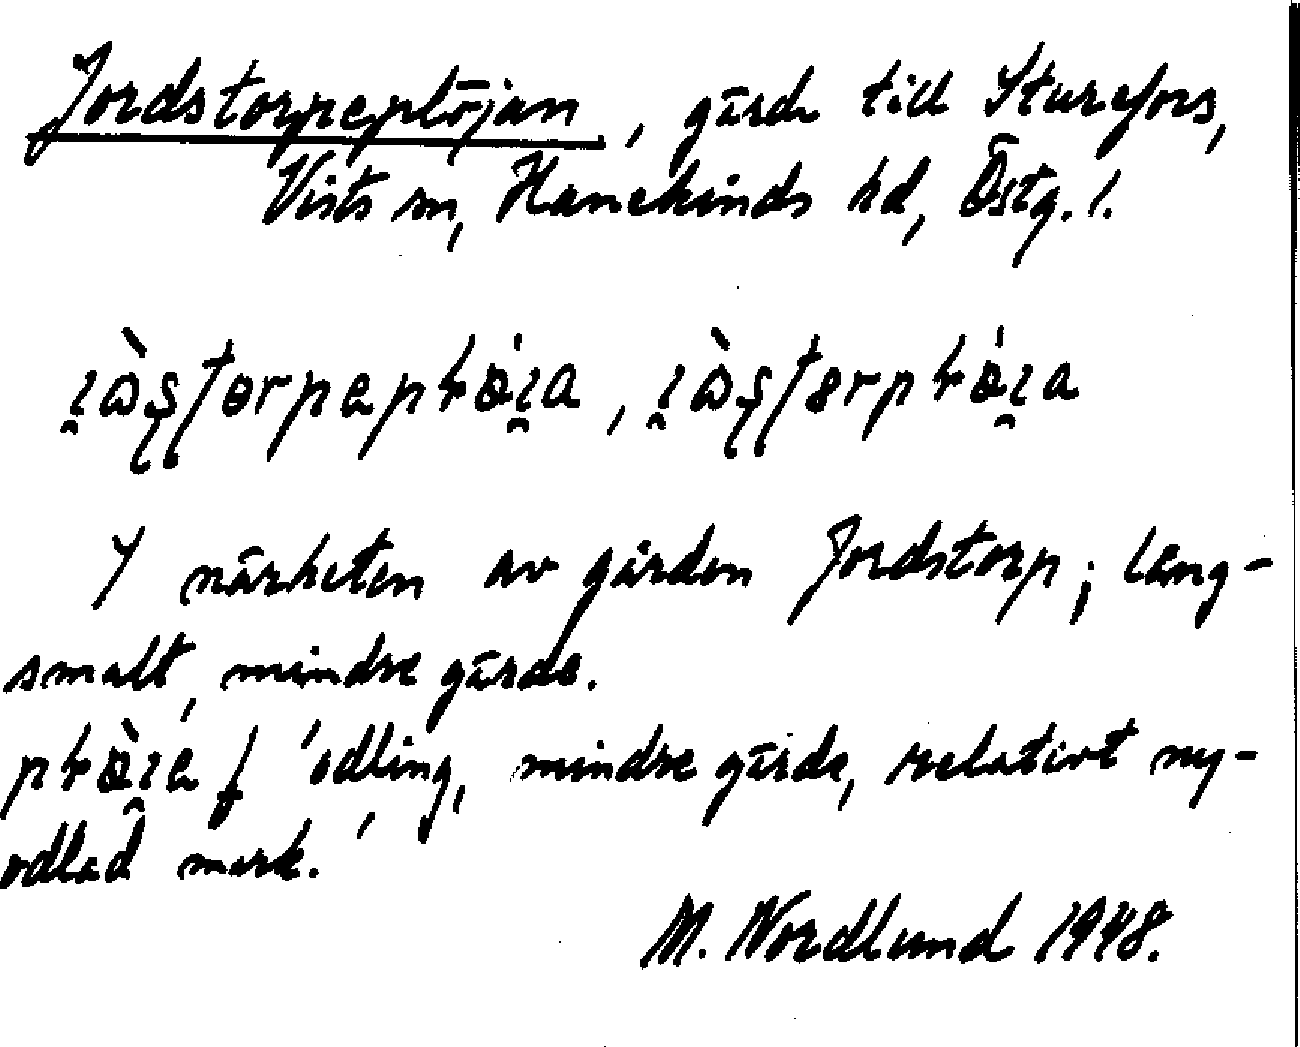 Jordstorpeplöjan, gärde till Sturefors,
Vists sn, Hanekinds hd, Östg. l.
I närheten av gården Jordstorp; lång-
smalt, mindre gärde.
f 'odling, mindre gärde, relativt ny-
odlad mark.'
M. Nordlund 1948.